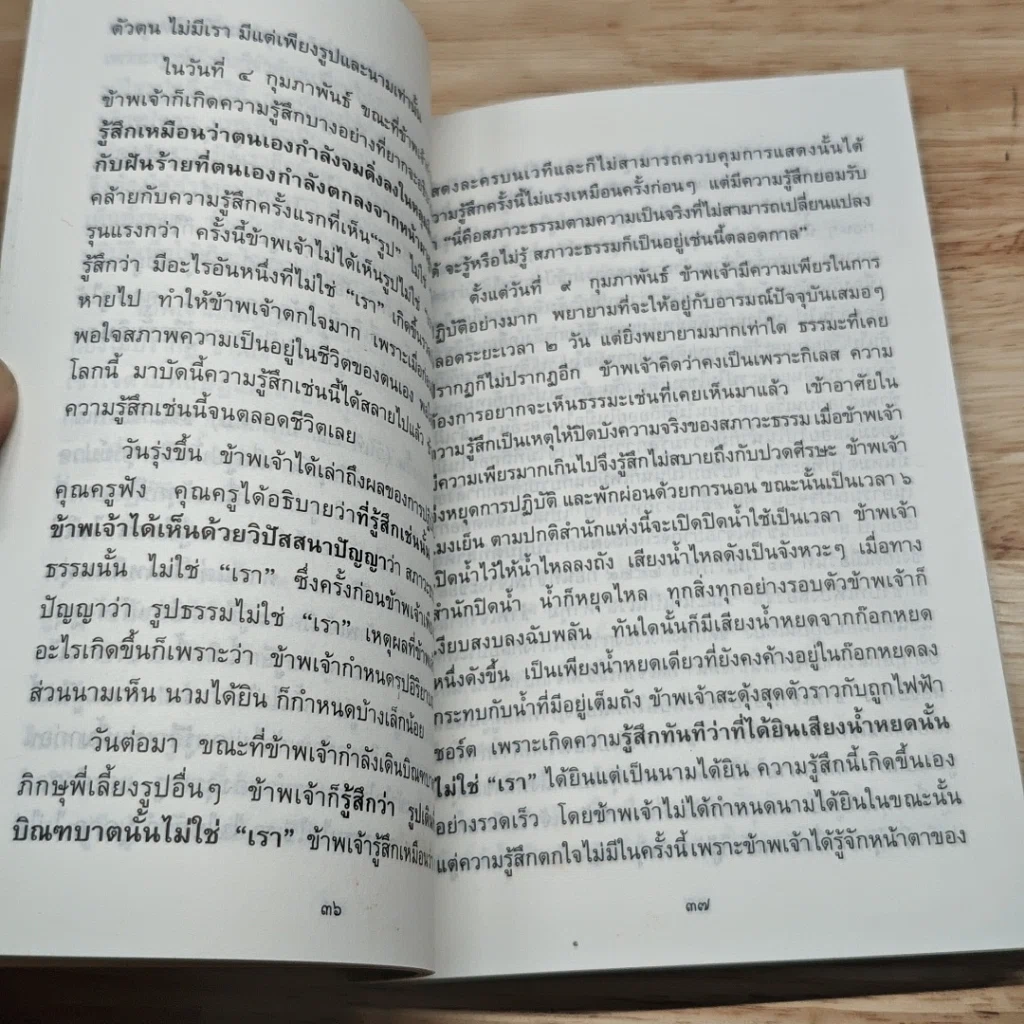 ตัวตน ไม่มีเรา มีแต่เพียงรูปและนามเท่านั้น
ในวันที่ ๔ กุมภาพันธ์ ขณะที่ข้าพเจ้า
ข้าพเจ้าก็เกิดความรู้สึกบางอย่างที่ยากจะ
รู้สึกเหมือนว่าตนเองกำลังจมดิ่งลงใน
กับฝันร้ายที่ตนเองกำลังตกลงจากหน้าผา
คล้ายกับความรู้สึกครั้งแรกที่เห็น“รูป”
รุนแรงกว่า ครั้งนี้ข้าพเจ้าไม่ได้เห็นรูปไม่ใช่
รู้สึกว่า มีอะไรอันหนึ่งที่ไม่ใช่ “เรา” เกิดขึ้น
หายไป ทำให้ข้าพเจ้าตกใจมาก เพราะเมื่อ
พอใจสภาพความเป็นอยู่ในชีวิตของตนเอง
โลกนี้ มาบัดนี้ความรู้สึกเช่นนี้ได้สลายไปแล้ว
ความรู้สึกเช่นนี้จนตลอดชีวิตเลย
วันรุ่งขึ้น ข้าพเจ้าได้เล่าถึงผลของการ
คุณครูฟัง คุณครูได้อธิบายว่าที่รู้สึกเช่นนั้น
ข้าพเจ้าได้เห็นด้วยวิปัสสนาปัญญาว่า
ธรรมนั้น ไม่ใช่ “เรา” ซึ่งครั้งก่อนข้าพเจ้า
ปัญญาว่า รูปธรรมไม่ใช่ “เรา” เหตุผลที่
อะไรเกิดขึ้นก็เพราะว่า ข้าพเจ้ากำหนดรูป
ส่วนนามเห็น นามได้ยิน ก็กำหนดบ้างเล็กน้อย
วันต่อมา ขณะที่ข้าพเจ้ากำลังเดินบิณฑบาต
ภิกษุพี่เลี้ยงรูปอื่นๆ ข้าพเจ้าก็รู้สึกว่า รูปเดิน
บิณฑบาตนั้นไม่ใช่ “เรา” ข้าพเจ้ารู้สึกเหมือน
๓๖
สดงละครบนเวทีและก็ไม่สามารถควบคุมการแสดงนั้นได้
วามรู้สึกครั้งนี้ไม่แรงเหมือนครั้งก่อนๆ แต่มีความรู้สึกยอมรับ
“นี่คือสภาวะธรรมตามความเป็นจริงที่ไม่สามารถเปลี่ยนแปลง
จะรู้หรือไม่รู้ สภาวะธรรมก็เป็นอยู่เช่นนี้ตลอดกาล”
ตั้งแต่วันที่ ๙ กุมภาพันธ์ ข้าพเจ้ามีความเพียรในการ
ฏิบัติอย่างมาก พยายามที่จะให้อยู่กับอารมณ์ปัจจุบันเสมอๆ
ลอดระยะเวลา ๒ วัน แต่ยิ่งพยายามมากเท่าใด ธรรมะที่เคย
ปรากฏก็ไม่ปรากฏอีก ข้าพเจ้าคิดว่าคงเป็นเพราะกิเลส ความ
้องการอยากจะเห็นธรรมะเช่นที่เคยเห็นมาแล้ว เข้าอาศัยใน
วามรู้สึกเป็นเหตุให้ปิดบังความจริงของสภาวะธรรม เมื่อข้าพเจ้า
ีความเพียรมากเกินไปจึงรู้สึกไม่สบายถึงกับปวดศีรษะ ข้าพเจ้า
ึงหยุดการปฏิบัติ และพักผ่อนด้วยการนอน ขณะนั้นเป็นเวลา ๖
โมงเย็น ตามปกติสำนักแห่งนี้จะเปิดปิดน้ำใช้เป็นเวลา ข้าพเจ้า
ปิดน้ำไว้ให้น้ำไหลลงถัง เสียงน้ำไหลดังเป็นจังหวะๆ เมื่อทาง
สำนักปิดน้ำ น้ำก็หยุดไหล ทุกสิ่งทุกอย่างรอบตัวข้าพเจ้าก็
งียบสงบลงฉับพลัน ทันใดนั้นก็มีเสียงน้ำหยดจากก๊อกหยด
หนึ่งดังขึ้น เป็นเพียงน้ำหยดเดียวที่ยังคงค้างอยู่ในก๊อกหยดลง
กระทบกับน้ำที่มีอยู่เต็มถัง ข้าพเจ้าสะดุ้งสุดตัวราวกับถูกไฟฟ้า
ชอร์ต เพราะเกิดความรู้สึกทันทีว่าที่ได้ยินเสียงน้ำหยดนั้น
ไม่ใช่ “เรา” ได้ยินแต่เป็นนามได้ยิน ความรู้สึกนี้เกิดขึ้นเอง
อย่างรวดเร็ว โดยข้าพเจ้าไม่ได้กำหนดนามได้ยินในขณะนั้น
แต่ความรู้สึกตกใจไม่มีในครั้งนี้ เพราะข้าพเจ้าได้รู้จักหน้าตาของ
๓๗